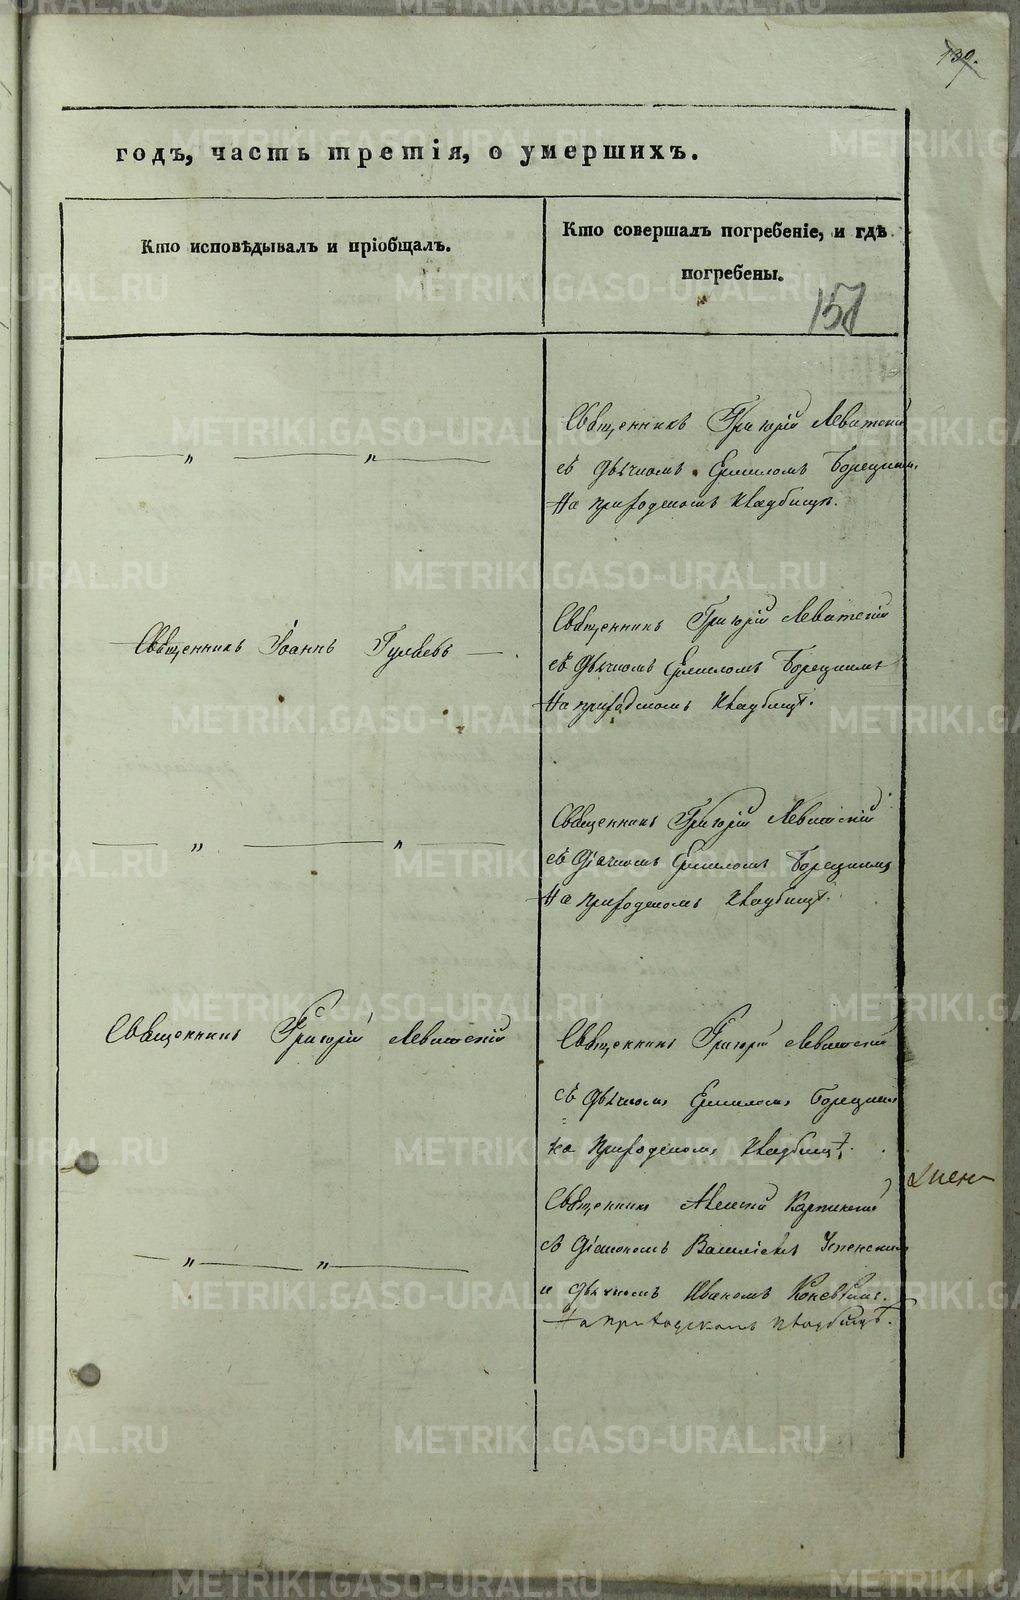 139.
годъ, часть третія, о умершихъ.
Кто исповѣдывалъ и пріобщалъ.
Кто совершалъ погребеніе, и гдѣ
погребены.
157
Священникъ Григорій Левитскій
съ Дьячкомъ Ермиломъ Борецкимъ
На приходскомъ кладбищѣ.
— „ — „ —
Священникъ Іоаннъ Гуляевъ —
Священникъ Григорій Левитскій
съ Дьячкомъ Ермиломъ Борецкимъ
На приходскомъ кладбищѣ.
Священникъ Григорій Левитскій
— „ — „ —
съ Діачкомъ Ермиломъ Борецкимъ
На приходскомъ кладбищѣ.
Священникъ Григорій Левитскій
Священникъ Григорій Левитскій
съ Дьячкомъ Ермиломъ Борецкимъ
на Приходскомъ кладбищѣ.
Священникъ Алексій
съ Діакономъ Василіемъ Успенскимъ
— „ — „ —
и Дьячкомъ Иваномъ
На приходскомъ кладбищѣ.
METRIKI.GASO-URAL.RU